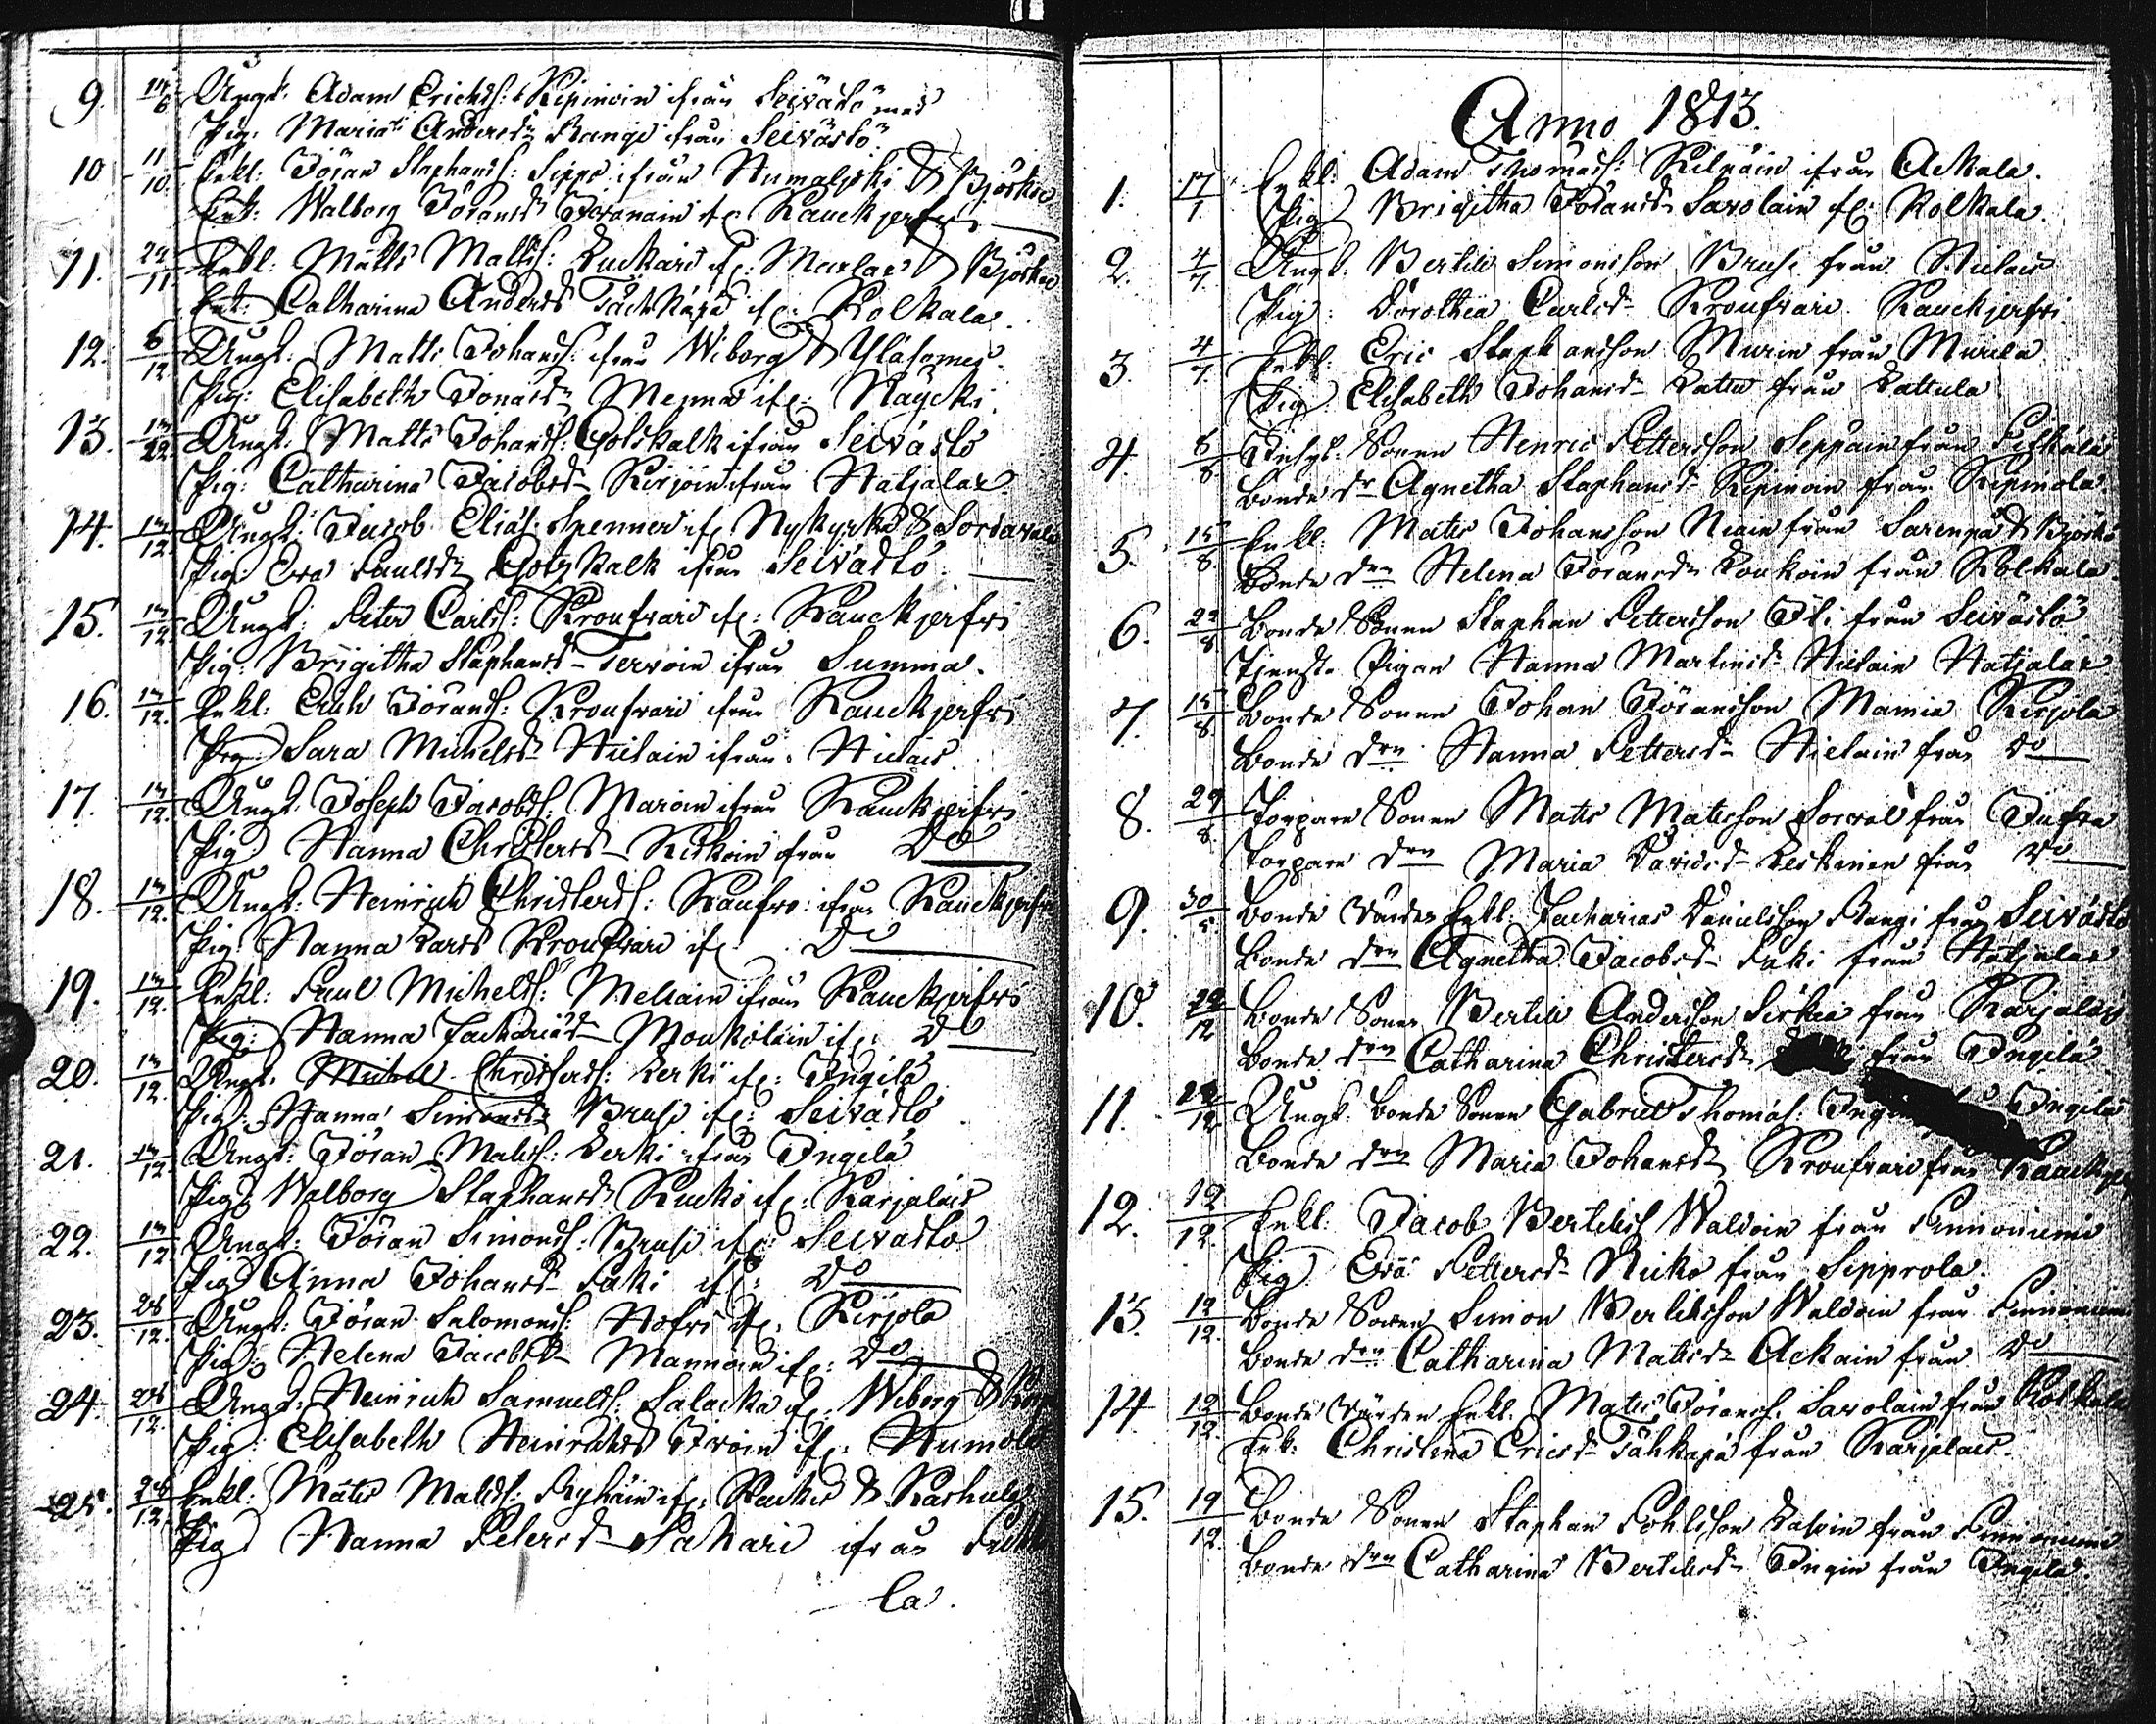 9. 14/6 Ungk. Adam Erichss: Repinoin ifrån Seivästö med
Pig: Maria Andersdr Rangi från Seivästö.
10 11/10. Enkl: Jöran Staphanss: Sipps ifrån Humaljoki & Björkö
Enk: Walborg Jöransdr Joranain if: Rauckjerfvi
11. 22/11 Enkl: Matts Mattss: Luckari if: Maxlax & Björkö
Enk: Catharina Anders Täckkäpä if: Kolkala.
12. 6/12 Ungk: Matts Johanss: ifrån Wiborg & Yläsomes
Pig: Elisabeth Jonasdr Menna if: Kaycki
13. 13/12. Ungk: Matts Johanss: Gotskalk ifrån Seivästö
Pig: Catharina Jacobsdr Kirjoin ifrån Hatjalax
14. 13/12. Ungk: Jacob Eliass: Spenner if: Nykyrka & Sordavala
Pig: Eva Paulsdr Gotzkalk ifrån Seivästö.
15. 13/12. Ungk: Peter Carlss: Kroufvari if: Rauckjerfvi
Pig: Brigitha Staphansdr Tervoin ifrån Summa.
16. 13/12. Enkl: Erich Jöranss: Kroufvari ifrån Rauckjerfvi
Pig: Sara Michelsdr Hietain ifrån Hietais.
17. 13/12. Ungk. Joseph Jacobss: Maroin ifrån Rauckjerfvi
Pig: Hanna Christersdr Kiskoin ifrån Do
18. 13/12. Ungk: Heinrich Christerss: Kaufro: ifrån Rauckjerfvi
Pig: Hanna Carls Kroufvari if: Do
19. 13/12. Enkl: Paul Michelss: Mellain ifrån Rauckjerfvi
Pig: Hanna Zachariasdr Moukolain if: Do
20. 13/12. Ungk. Michel Christerss: Lerki if: Ingilä
Pig: Hanna Simonsdr Brusi if: Seivästö
21. 13/12. Ungk: Jöran Matss: Lerki ifrån Ingilä
Pig: Walborg Staphansdr Kucko if: Karjalais
22. 13/12. Ungk: Jöran Simonss: Brusi if: Seivästö
Pig: Anna Johansdr Paki if: Do
23. 26/12. Ungk: Jöran Salomonss: Hofri if: Kirjola
Pig: Helena Jacobsdr Mannoin if: Do
24. 26/12. Ungk: Heinrich Samuelss: Salacka if: Wiborg &
Pig: Elisabeth Heinrichs Ivoin if: Humola
25. 26/12. Enkl: Mats Matss: Ryhäin if: & Karhula
Pig: Hanna Petersdr Sakari ifrån
la.
Anno 1813.
1. 17/1 Enkl: Adam Thomass: Kilpäin ifrån Ackala.
Pig Brigitha Jöransdr Savolain if: Kolkala.
2. 4/7. Ungk: Bertill Simonsson Brusi från Hietais
Pig: Dorothea Carlsdr Kroufvari Rauckjerfvi
3. 4/7. Enkl. Eric Staphansson Murin från Murila
Pig: Elisabeth Johansdr Lattu från Lattula
4. 8/8 Inhys: Sonen Henric Pettersson Seppain från
Bonde dr Agnetha Staphansdr Repinoin från Repinola
5. 15/8 Enkl. Mats Johansson från Sarenpä & Björkö
Bonde drn Helena Jöransdr Loukoin från Kolkala
6. 22/8 Bonde Sonen Staphan Pettersson Ili från Seivästö
Tjenste Pigan Hanna Martinsdr Hietain Hatjalax
7. 15/8. Bonde Sonen Johan Jöransson Mamia Kirjola
Bonde drn Hanna Pettersdr Hietain från Do
8. 29/8. Torpare Sonen Mats Matsson Sorval från Jufra
Torpare drn Maria Davidsdr Leskinen från Do
9. 30/ Bonde Värden Enkl: Zacharias Danielsson Rangi från Seivästö
Bonde drn Agnetha Jacobsdr Paki från Hatjalax
10. 29/12 Bonde Sonen Bertill Andersson Sirkia från Karjalais
Bonde drn Catharina Christersdr från Ingilä
11. 29/12 Ungk: Bonde Sonen Gabriel Thomas: Ingilä
Bonde drn Maria Johansdr Kroufvari från
12. 12/12. Enkl: Jacob Bertilss Waldoin från Finnoniemi
Pig: Eva Pettersdr Kucko från Sipprola.
13. 12/12. Bonde Sonen Simon Bertilsson Waldoin från Finnoniemi
Bonde drn: Catharina Matsdr Ackain från Do
14 12/12. Bonde Värden Enkl. Mats Jöranss: Savolain från Kolkala
Enk: Christina Ericsdr Tähkäpä från Karjalais.
15. 19/12. Bonde Sonen Staphan från Finnoniemi
Bonde drn Catharina Bertilsdr Ingin från Ingilä.